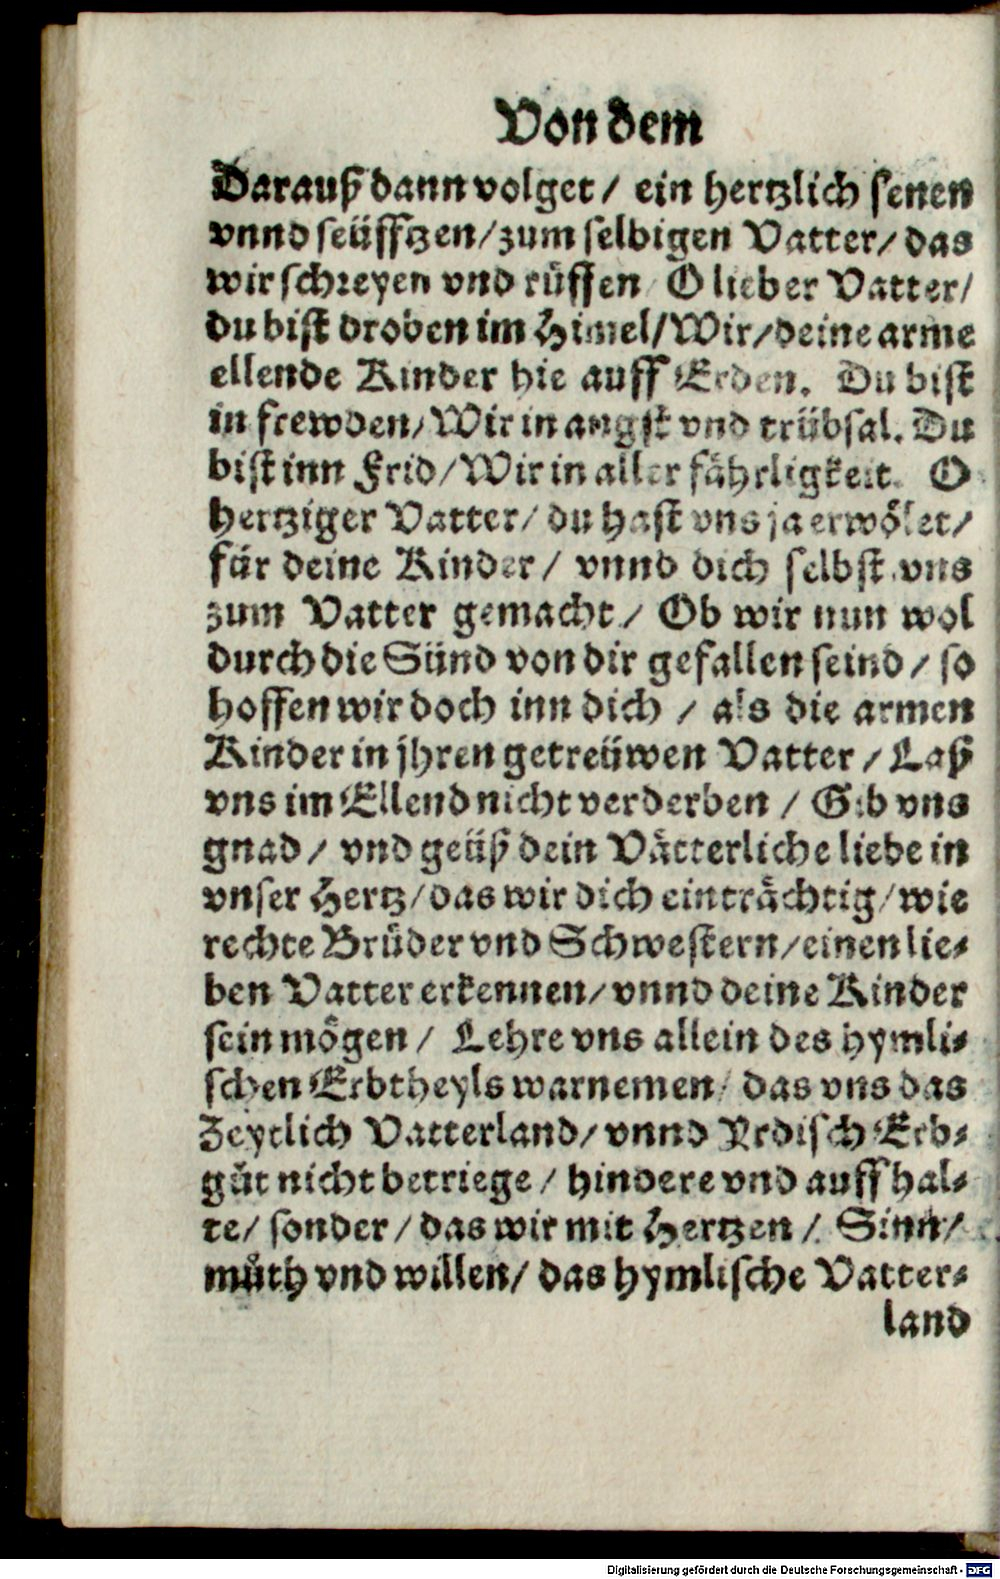 Von dem
Darauß dann volget / ein hertzlich senen
vnnd seüfftzen / zum selbigen Vatter / das
wir schreyen vnd rüffen O lieber Vatter /
du bist droben im Himel / Wir / deine arme
ellende Kinder hie auff Erden. Du bist
in frewden / Wir in angst vnd trübsal. Du
bist inn Frid / Wir in aller fährligkeit. O
hertziger Vatter / du hast vns ja erwölet /
für deine Kinder / vnnd dich selbst vns
zum Vatter gemacht / Ob wir nun wol
durch die Sünd von dir gefallen seind / so
hoffen wir doch inn dich / als die armen
Kinder in jhren getreüwen Vatter / Laß
vns im Ellend nicht verderben / Gib vns
gnad / vnd geüß dein Vätterliche liebe in
vnser Hertz / das wir dich einträchtig / wie
rechte Brüder vnd Schwestern / einen lie-
ben Vatter erkennen / vnnd deine Kinder
sein mögen / Lehre vns allein des hymli-
schen Erbtheyls warnemen / das vns das
Zeytlich Vatterland / vnnd Yrdisch Erb-
gůt nicht betriege / hindere vnd auff hal-
te / sonder / das wir mit Hertzen / Sinn /
můth vnd willen / das hymlische Vatter-
land
Digitalisierung gefördert durch die Deutsche Forschungsgemeinschaft - DFG